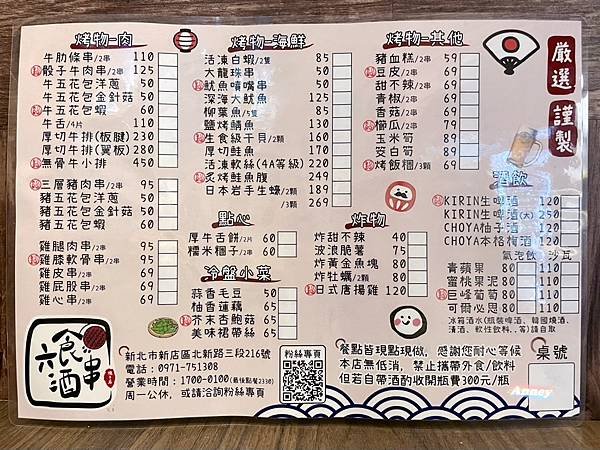 烤物-肉
牛肋條串/2串 110
骰子牛肉串/2串 125
牛五花包洋蔥/2串 50
牛五花包金針菇/2串 50
牛五花包蝦/2串 60
牛舌/4片 110
厚切牛排(板腱) 230
厚切牛排(翼板) 380
無骨牛小排 450
三層豬肉串/2串 95
豬五花包洋蔥/2串 50
豬五花包金針菇/2串 50
豬五花包蝦/2串 60
雞腿肉串/2串 95
雞膝軟骨串/2串 95
雞皮串/2串 69
雞屁股串/2串 69
雞心串/2串 69
烤物-海鮮
活凍白蝦/2隻 85
大龍珠串 50
魷魚嘴嘴串 50
深海大魷魚
柳葉魚/5隻 85
鹽烤鯖魚
生食級干貝/2顆
厚切鮭魚
活凍軟絲(4A等級) 220
炙烤鮭魚腹 249
日本岩手生蠔/2顆 189
/3顆 269
點心
厚牛舌餅/2片 60
糯米糰子/2串 60
冷盤小菜
蒜香毛豆 50
柚香蓮藕 65
芥末杏鮑菇 65
美味裙帶絲 65
烤物-其他
豬血糕/2串 59
豆皮/2串
甜不辣/2串
青椒/2串
香菇/2串
櫛瓜/2串
玉米筍
筊白筍
烤飯糰/3顆 69
炸物
炸甜不辣 40
波浪脆薯 75
炸黃金魚塊 80
炸牡蠣/2顆 80
日式唐揚雞 120
嚴選 謹製
酒飲
KIRIN生啤酒 120
KIRIN生啤酒(大) 250
CHOYA柚子酒 120
CHOYA本格梅酒 120
氣泡飲/沙瓦
青蘋果 80 110
蜜桃果泥 80 110
巨峰葡萄 80 110
可爾必思 80 110
冰箱酒水(瓶裝啤酒、韓國燒酒、
清酒、軟性飲料..等)請自取
食串
六酒
新北市新店區北新路三段216號
電話:0971-751308
營業時間:1700-0100(最後點餐2330)
周一公休,或請洽詢粉絲專頁
粉絲專頁
餐點皆現點現做,感謝您耐心等候
本店無低消,禁止攜帶外食/飲料
但若自帶酒酌收開瓶費300元/瓶
桌號
Anney